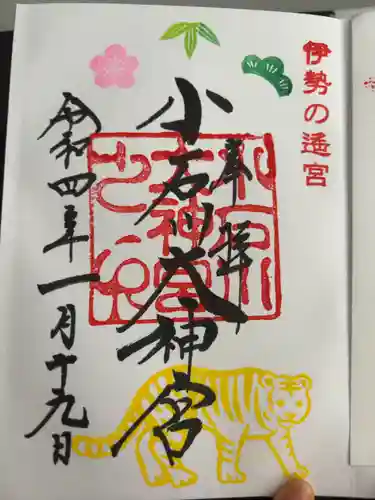 伊勢の遥宮
奉拝
小石川大神宮
令和四年一月十九日